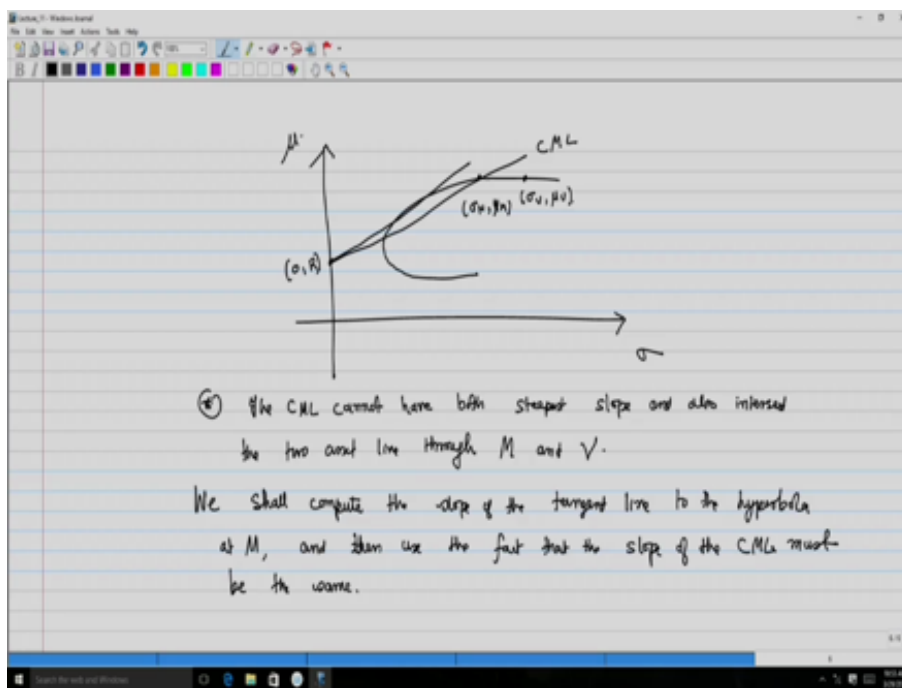 Lecture_11 - Windows Journal
File Edit View Insert Actions Tools Help
B I
μ
CML
(σ_M, μ_M) (σ_V, μ_V)
(0, R)
σ
The CML cannot have both steepest slope and also intersect
the two asset line through M and V.
We shall compute the slope of the tangent line to the hyperbola
at M, and then use the fact that the slope of the CML must
be the same.
Search the web and Windows